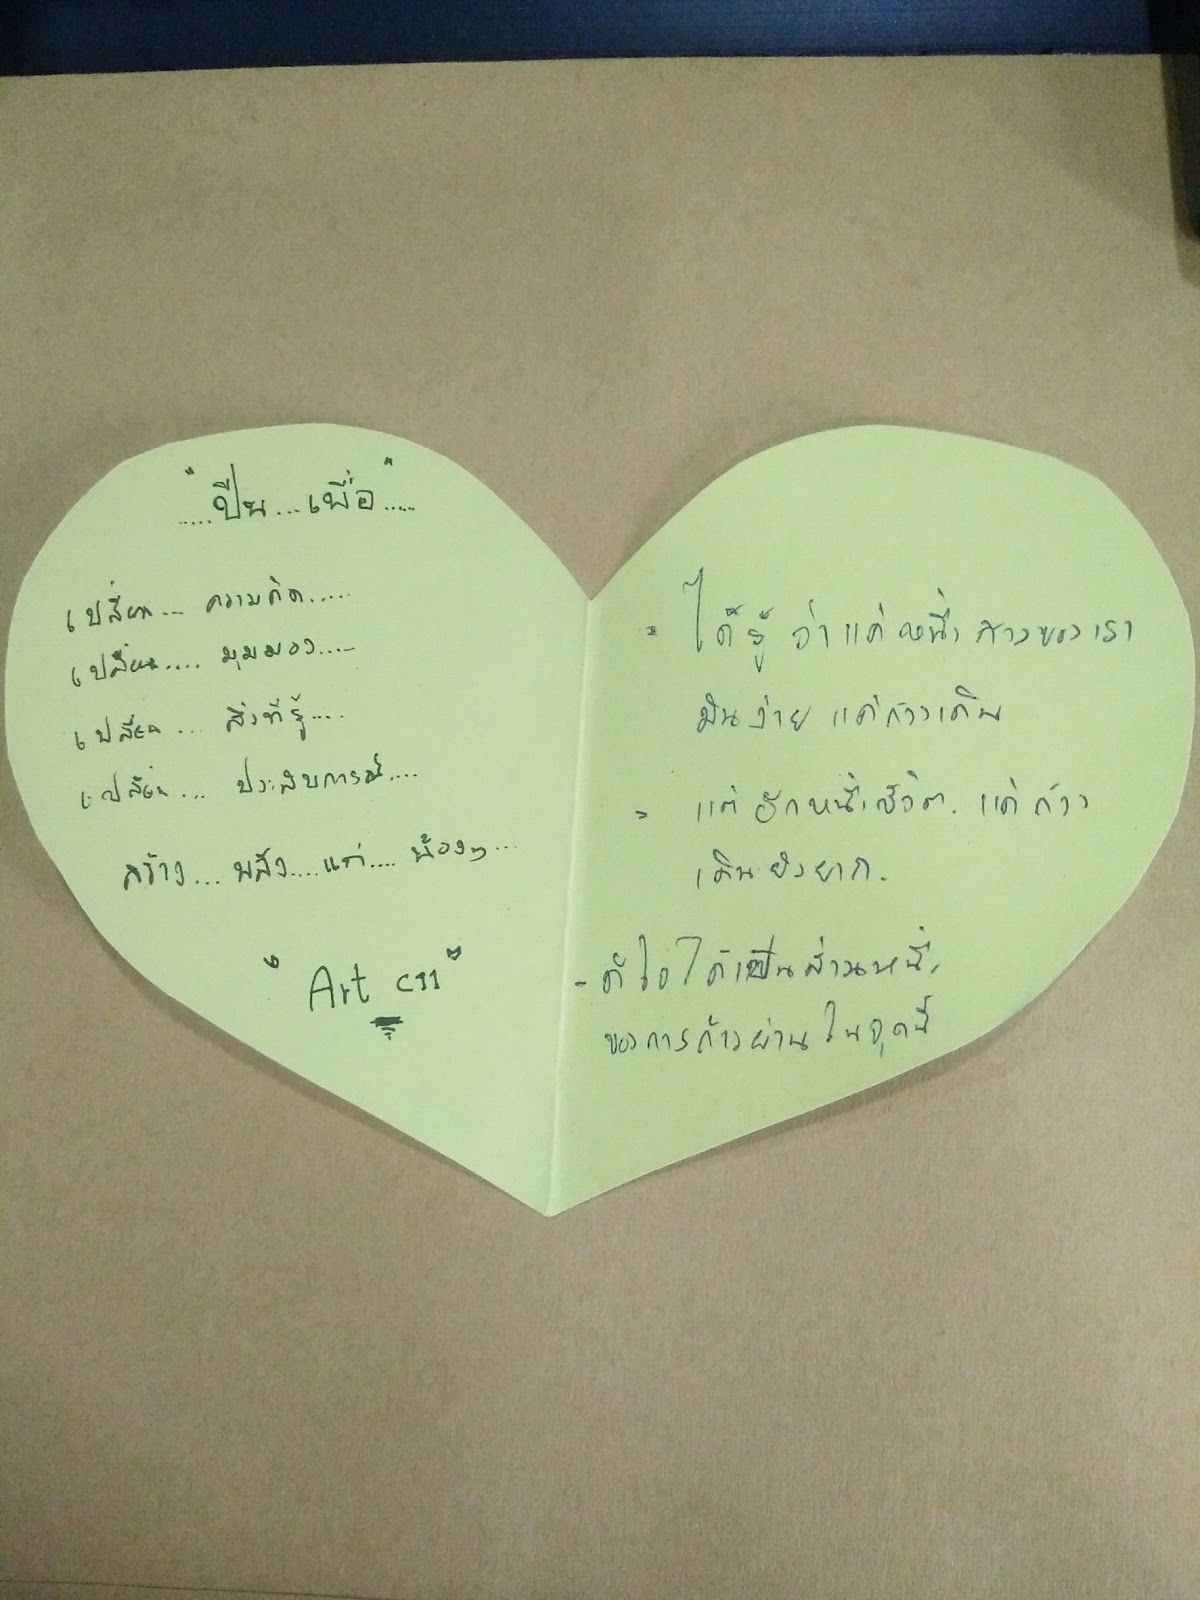 "....ปีน...เพื่อ"....
เปลี่ยน... ความคิด.....
เปลี่ยน.... มุมมอง....
เปลี่ยน... สิ่งที่รู้....
เปลี่ยน... ประสบการณ์....
สร้าง... พลัง....แก่.... น้องๆ...
"Art
- ได้รู้ว่าแค่หนึ่ง ของเรา
มันง่าย แค่ก้าวเดิน
- แต่อีกหนึ่งชีวิต. แค่ก้าว
เดินยังยาก.
- ดีใจได้เป็นส่วนหนึ่ง
ของการก้าวผ่านในจุดนี้